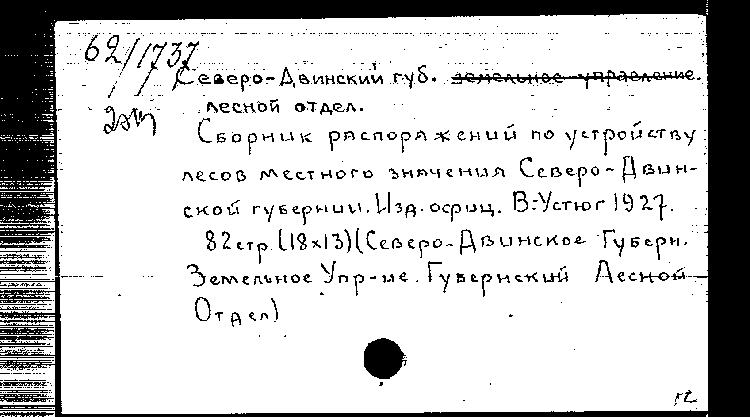 62/1737
Северо-Двинский губ. земельное управление.
2эт
лесной отдел.
Сборник распоряжений по устройству
лесов местного значения Северо-Двин-
ской губернии. Изд. офиц. В-Устюг 1927.
82 стр. (18х13) (Северо-Двинское Губерн.
Земельное Упр-ие. Губернский Лесной
Отдел)